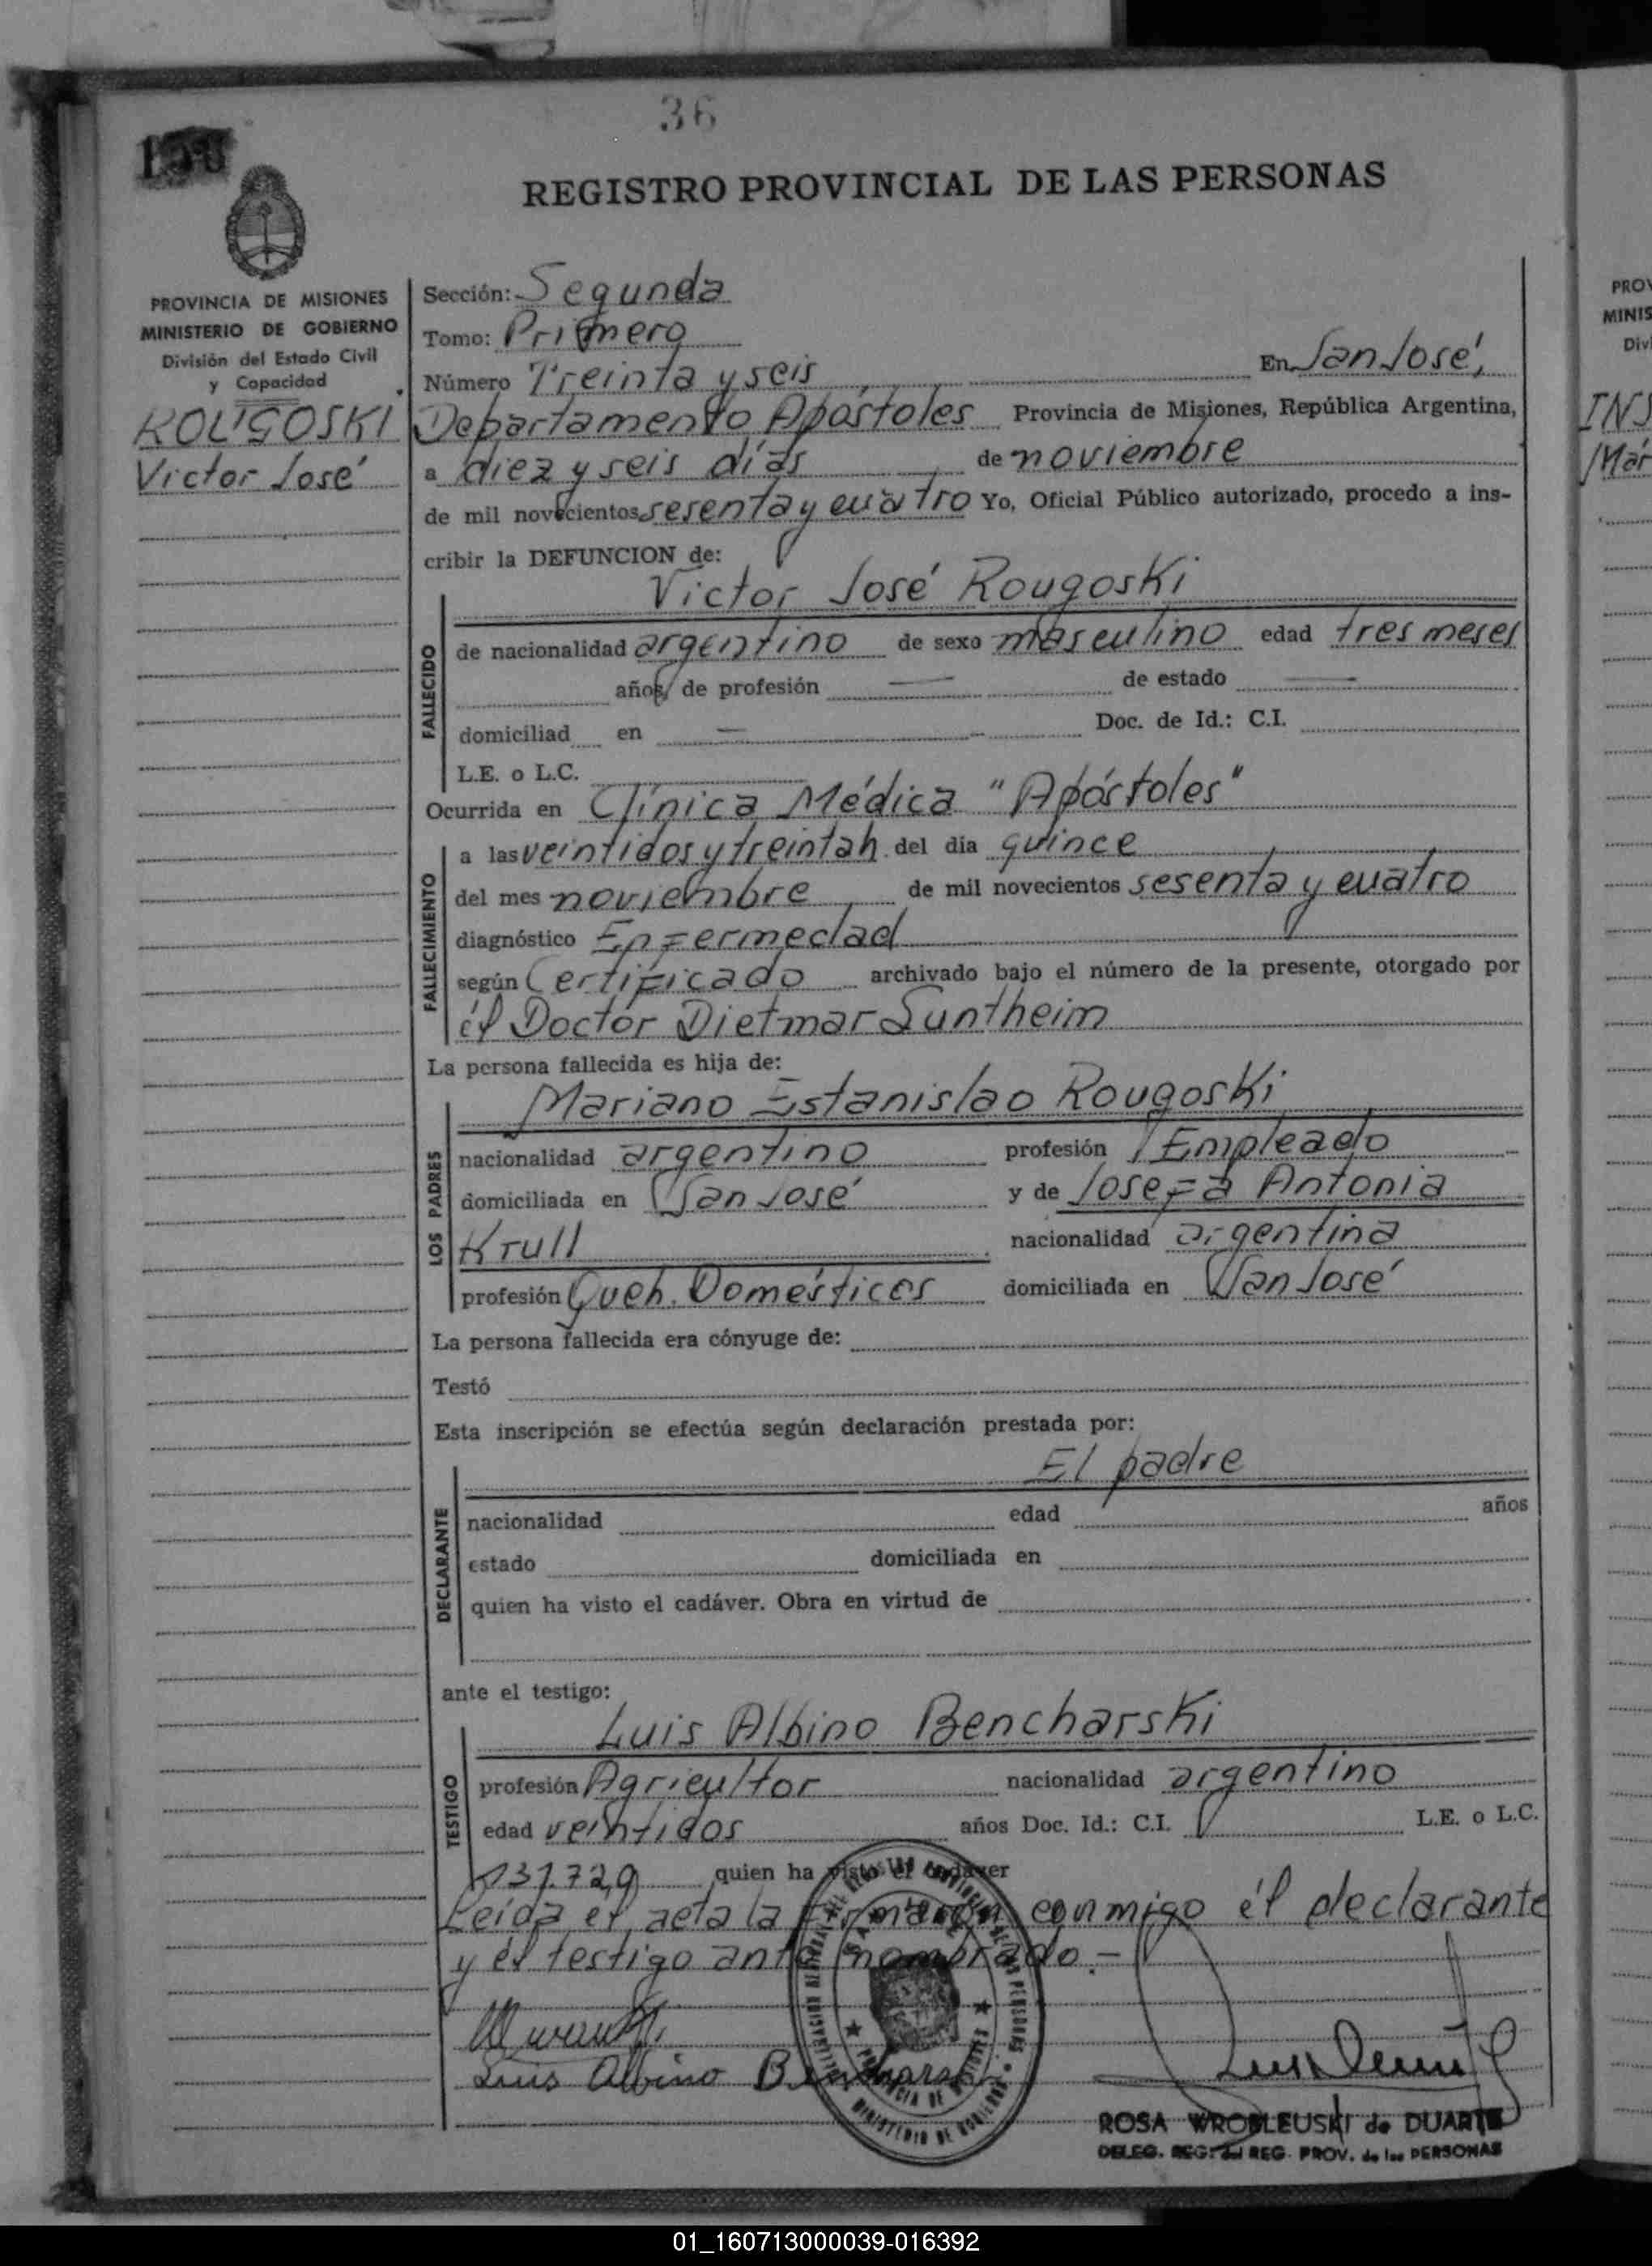 36
150
REGISTRO PROVINCIAL DE LAS PERSONAS
PROVINCIA DE MISIONES
MINISTERIO DE GOBIERNO
División del Estado Civil
y Capacidad
ROUGOSKI
Victor José
Sección: Segunda
Tomo: Primero
Número Treinta y seis En San José,
Departamento Apóstoles Provincia de Misiones, República Argentina,
a diez y seis días de noviembre
de mil novecientos sesenta y cuatro Yo, Oficial Público autorizado, procedo a ins-
cribir la DEFUNCION de:
Victor José Rougoski
FALLECIDO
de nacionalidad argentino de sexo masculino edad tres meses
años, de profesión — de estado —
domiciliad en — Doc. de Id.: C.I.
L.E. o L.C.
Ocurrida en Clínica Médica "Apóstoles"
FALLECIMIENTO
a las veintidos y treinta h. del día quince
del mes noviembre de mil novecientos sesenta y cuatro
diagnóstico Enfermedad
según Certificado archivado bajo el número de la presente, otorgado por
él Doctor Dietmar Suntheim
La persona fallecida es hija de:
Mariano Estanislao Rougoski
LOS PADRES
nacionalidad argentino profesión Empleado
domiciliada en San José y de Josefa Antonia
Krull nacionalidad argentina
profesión Queh. Domésticos domiciliada en San José
La persona fallecida era cónyuge de:
Testó
Esta inscripción se efectúa según declaración prestada por:
El padre
DECLARANTE
nacionalidad edad años
estado domiciliada en
quien ha visto el cadáver. Obra en virtud de
ante el testigo:
Luis Albino Bencharski
TESTIGO
profesión Agricultor nacionalidad argentino
edad veintidos años Doc. Id.: C.I. L.E. o L.C.
quien ha visto el cadáver
Leída el acta la firmaron conmigo él declarante
y él testigo ante nombrado.-
Luis Albino Bencharski
ROSA WROBLEUSKI de DUARTE
DELEG. REG. del REG. PROV. de las PERSONAS
PROV
MINIS
Divi
INS
Mar
01_160713000039-016392